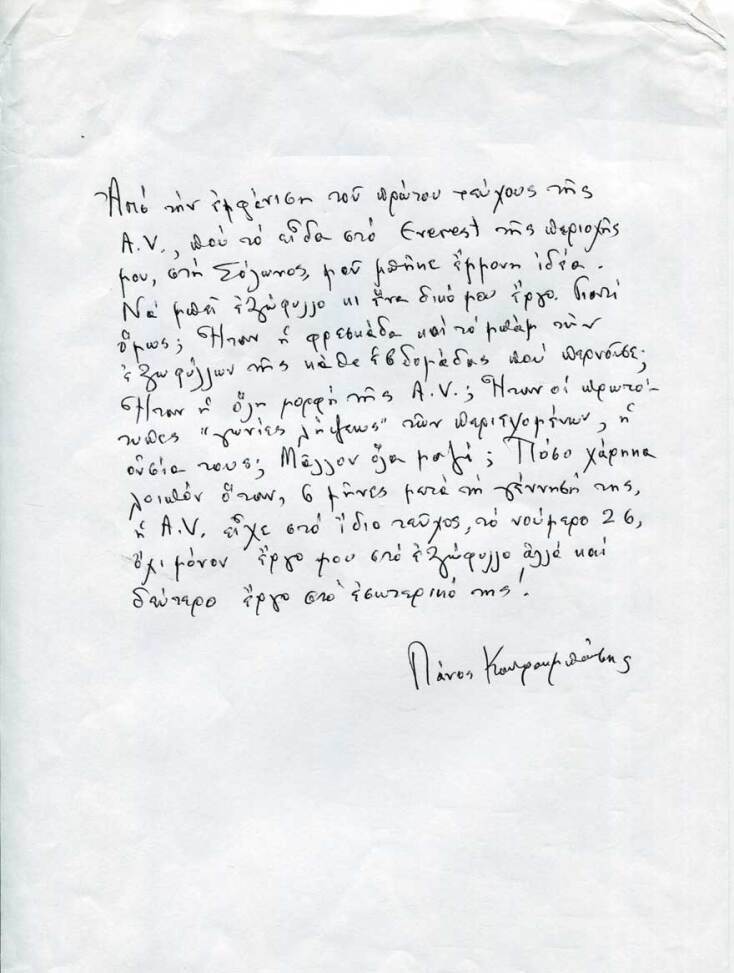 Ἀπό τήν ἐμφάνιση τοῦ πρώτου τεύχους τῆς
A.V., πού τό εἶδα στό Everest τῆς περιοχῆς
μου, στή Σόλωνος, μοῦ μπῆκε ἔμμονη ἰδέα.
Νά μπεῖ ἐξώφυλλο κι ἕνα δικό μου ἔργο. Γιατί
ὅμως; Ἦταν ἡ φρεσκάδα καί τό μπάμ τῶν
ἐξωφύλλων τῆς κάθε ἑβδομάδας πού περνοῦσε;
Ἦταν ἡ ὅλη μορφή τῆς A.V.; Ἦταν οἱ πρωτό-
τυπες "γωνίες λήψεως" τῶν περιεχομένων, ἡ
οὐσία τους; Μᾶλλον ὅλα μαζί; Πόσο χάρηκα
λοιπόν ὅταν, 6 μῆνες μετά τή γέννησή της,
ἡ A.V. εἶχε στό ἴδιο τεῦχος, τό νούμερο 26,
ὄχι μόνον ἔργο μου στό ἐξώφυλλο ἀλλά καί
δεύτερο ἔργο στό ἐσωτερικό της!
Πάνος Κουτρουμπούσης